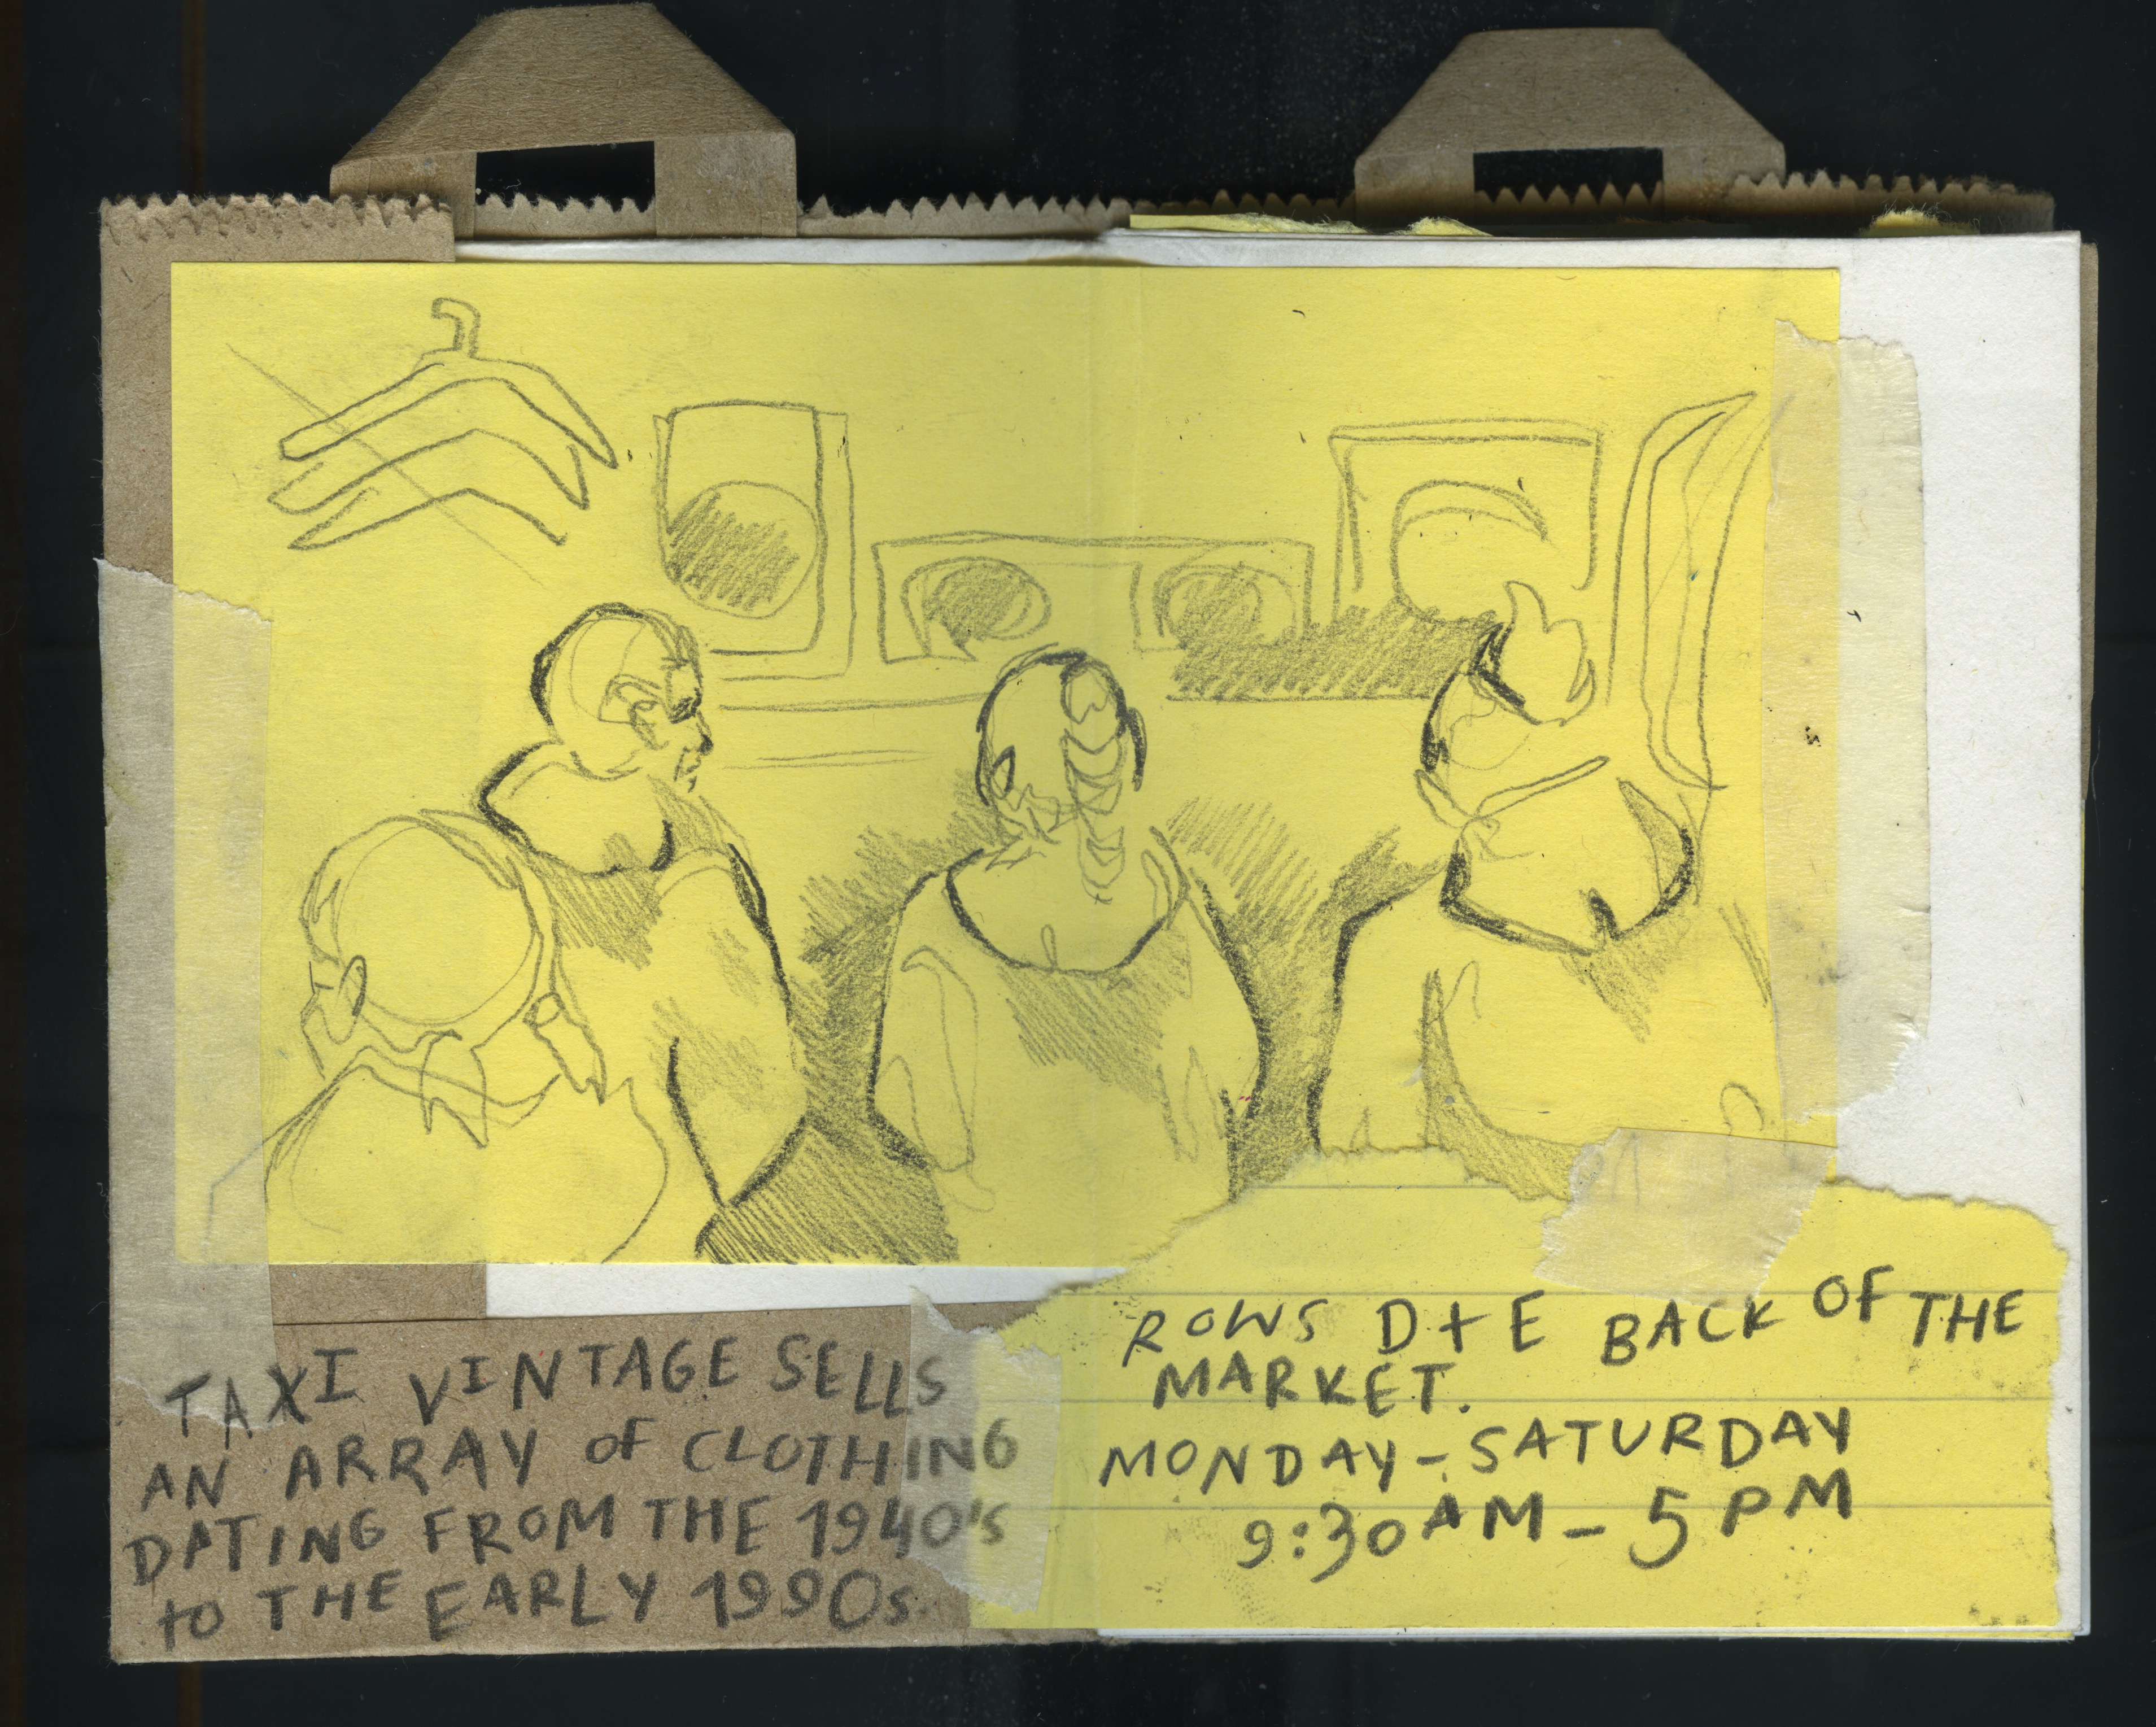 TAXI VINTAGE SELLS
AN ARRAY OF CLOTHING
DATING FROM THE 1940's
to THE EARLY 1990s.
ROWS D+E BACK OF THE
MARKET.
MONDAY - SATURDAY
9:30AM - 5PM